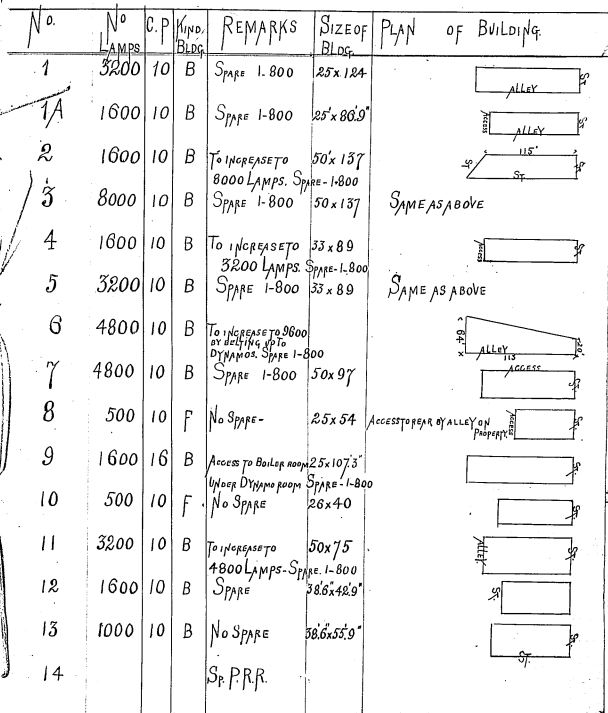 No. No LAMPS C.P KIND. BLDG REMARKS SIZE OF BLDG. PLAN OF BUILDING.
1 3200 10 B SPARE 1-800 25x124
ST
ALLEY
1A 1600 10 B SPARE 1-800 25'x86'.9"
ACCESS ST
ALLEY
2 1600 10 B TO INCREASE TO 50'x137 115'
8000 LAMPS. SPARE-1-800 ST. ST
ST.
3 8000 10 B SPARE 1-800 50x137 SAME AS ABOVE
4 1600 10 B TO INCREASE TO 33x89 ACCESS ST
3200 LAMPS. SPARE-1-800
5 3200 10 B SPARE 1-800 33x89 SAME AS ABOVE
6 4800 10 B TO INCREASE TO 9600 64'
BY BELTING UP TO 20'
DYNAMOS. SPARE 1-800 ALLEY
113
7 4800 10 B SPARE 1-800 50x97 ACCESS
ST
8 500 10 F NO SPARE- 25x54 ACCESS TO REAR BY ALLEY ON ACCESS ST.
PROPERTY.
9 1600 16 B ACCESS TO BOILER ROOM 25x107'.3" ST.
UNDER DYNAMO ROOM SPARE-1-800
10 500 10 F NO SPARE 26x40 ST.
11 3200 10 B TO INCREASE TO 50x75 ALLEY. ST.
4800 LAMPS-SPARE. 1-800
12 1600 10 B SPARE 38'.6"x42'.9" ST.
13 1000 10 B NO SPARE 38'.6"x55'.9" ST.
ST.
14 SP. P.R.R.